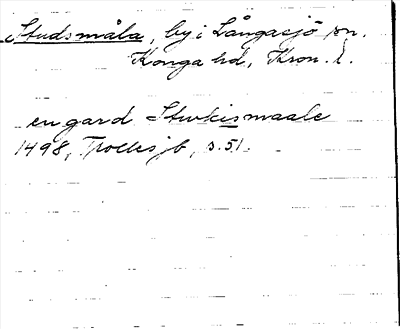 Studsmåla, by i Långasjö sn.
Konga hd, Kron. l.
en gard Stwkismaale
1498, Trolles jb, s. 51.